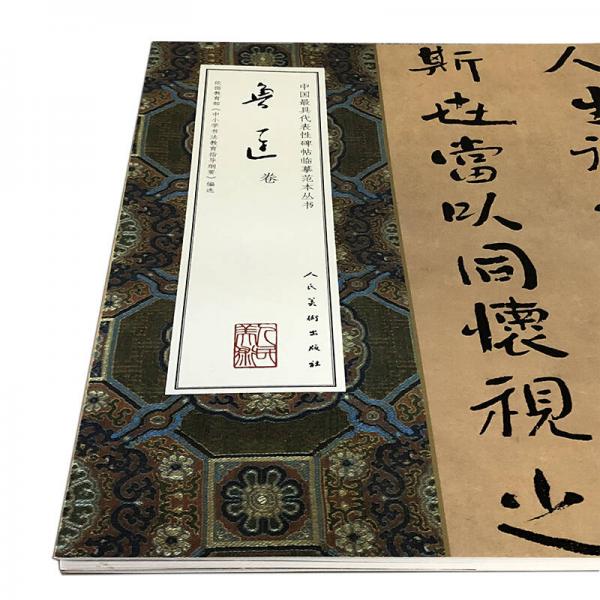 人生
斯世當以同懷視之
中国最具代表性碑帖临摹范本丛书
魯迅 卷
依据教育部《中小学书法教育指导纲要》编选
人民美術出版社